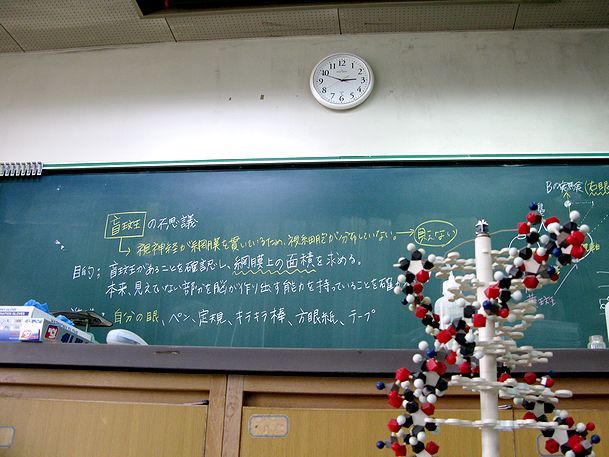 盲斑の不思議
視神経が網膜を貫いているため、視細胞が分布していない。→見えない
目的:盲斑があることを確認し、網膜上の面積を求める。
本来、見えていない部分を脳が作り出す能力を持っていることを確
自分の眼、ペン、定規、キラキラ棒、方眼紙、テープ
12
1
2
3
4
5
6
7
8
9
10
11